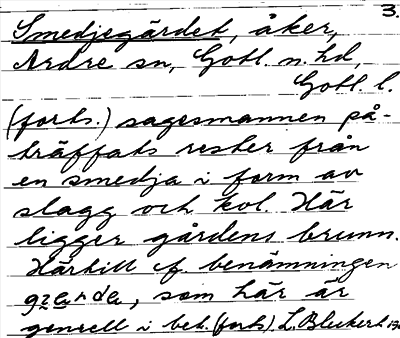 3.
Smedjegärdet, åker,
Ardre sn, Gotl. n. hd,
Gotl. l.
(forts.) sagesmannen på-
träffats rester från
en smedja i form av
slagg och kol. Här
ligger gårdens brunn.
Härtill cf. benämningen
som här är
generell i bet. (forts.) L. Bleckert